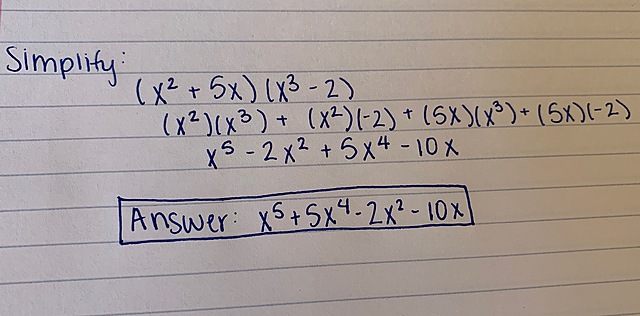 Simplify:
(x² + 5x)(x³ - 2)
(x²)(x³) + (x²)(-2) + (5x)(x³) + (5x)(-2)
x⁵ - 2x² + 5x⁴ - 10x
Answer: x⁵ + 5x⁴ - 2x² - 10x